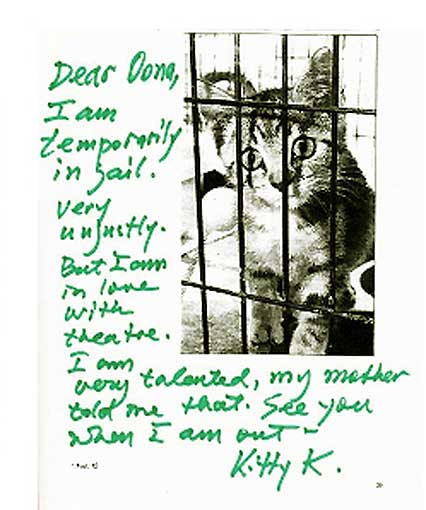 Dear Oona,
I am
temporarily
in jail.
Very
unjustly.
But I am
in love
with
theatre.
I am
very talented, my mother
told me that. See you
when I am out –
Kitty K.